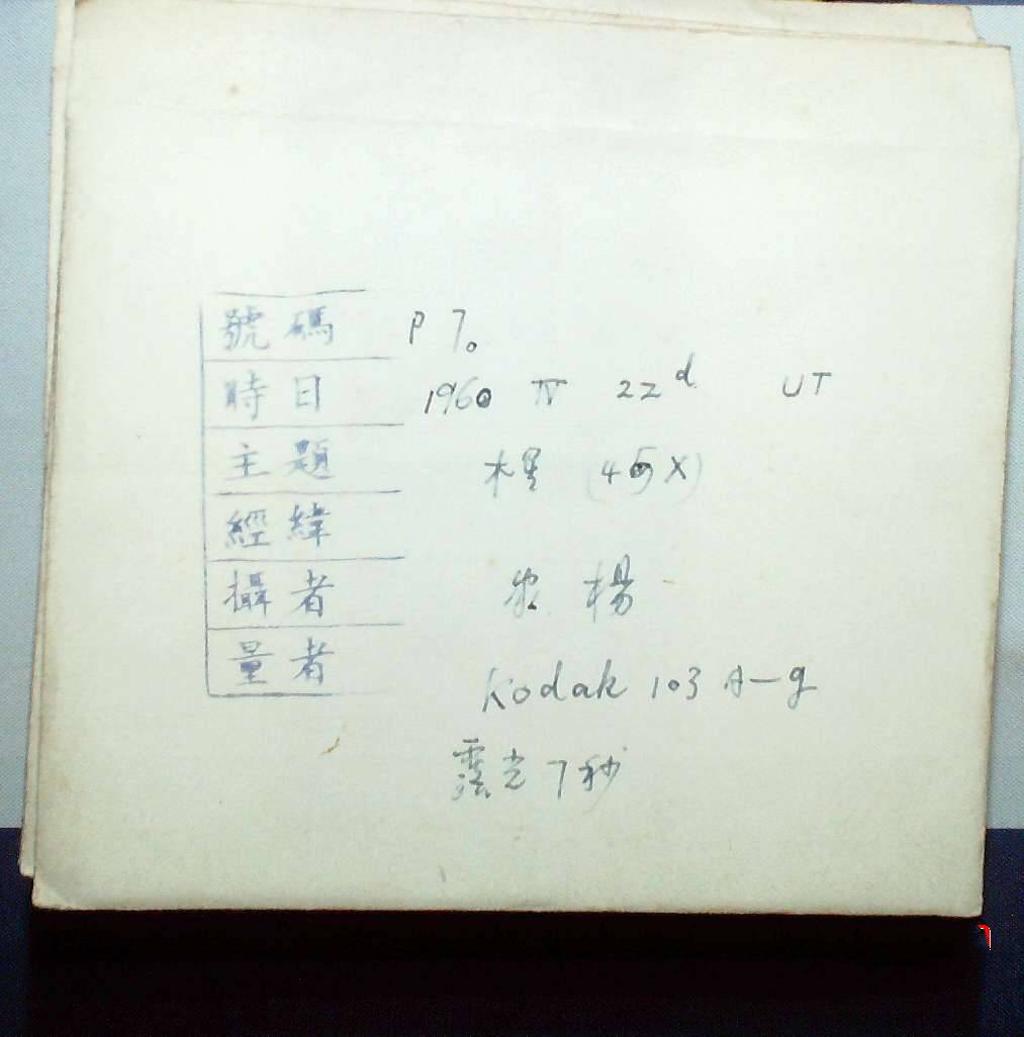 號碼 P 7。
時日 1960 IV 22d UT
主題 木星 (45X)
經緯
攝者 楊
量者
Kodak 103 A-g
露光7秒